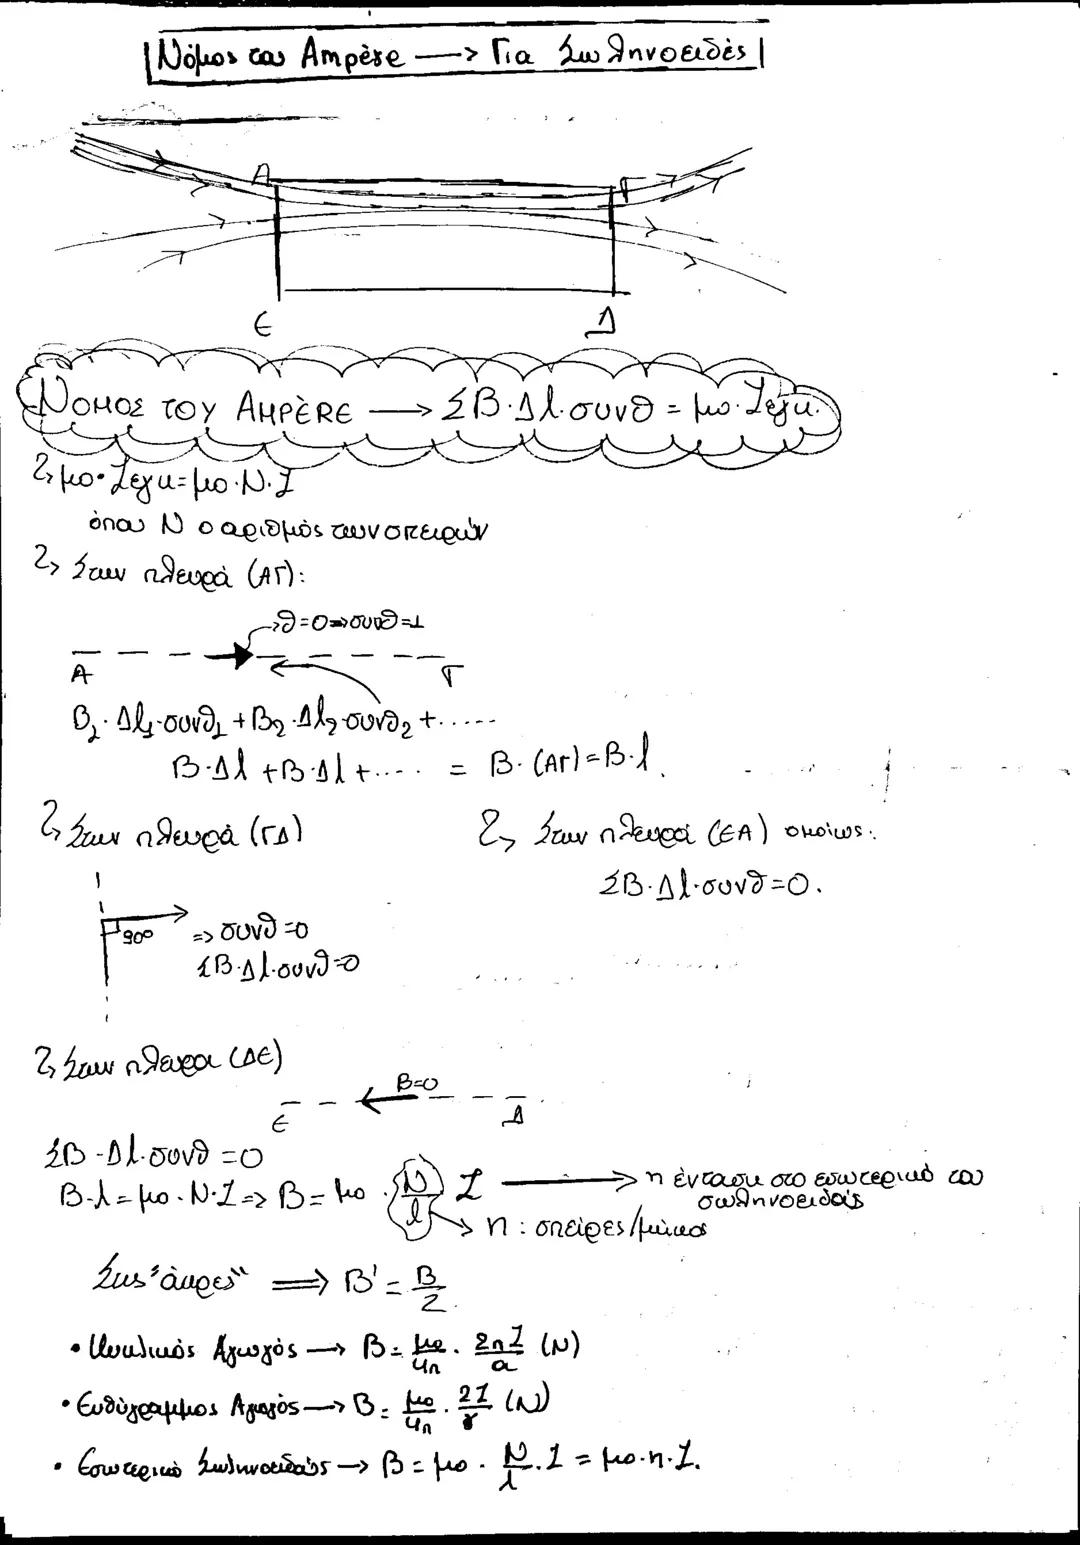 Νόμος του Ampère → Για Σωληνοειδές
Α
Γ
Ε
Δ
ΝΟΜΟΣ ΤΟΥ AMPÈRE → ΣΒ·Δl·συνθ = μο·Ιεγκ.
μο·Ιεγκ=μο·Ν·Ι
όπου Ν ο αριθμός των σπειρών
Στην πλευρά (ΑΓ):
θ=0⇒συνθ=1
Α
Γ
Β₁·Δl₁·συνθ₁+Β₂·Δl₂·συνθ₂+.....
Β·Δl+Β·Δl+.... = Β·(ΑΓ)=Β·l
Στην πλευρά (ΓΔ)
90°
=> συνθ=0
ΣΒ·Δl·συνθ=0
Στην πλευρά (ΕΑ) ομοίως:
ΣΒ·Δl·συνθ=0.
Στην πλευρα (ΔΕ)
Β=0
Ε
Δ
ΣΒ·Δl·συνθ=0
Β·l=μο·Ν·Ι=> Β=μο·Ν/l Ι → η ένταση στο εσωτερικό του
σωληνοειδούς
n: σπείρες/μήκος
Στις "άκρες" ⟹ Β'=Β/2
• Κυκλικός Αγωγός → Β=μο/4π · 2πΙ/α (Ν)
• Ευθύγραμμος Αγωγός → Β=μο/4π · 2Ι/r (Ν)
• Εσωτερικό Σωληνοειδούς → Β=μο · Ν/l · Ι = μο·n·Ι.